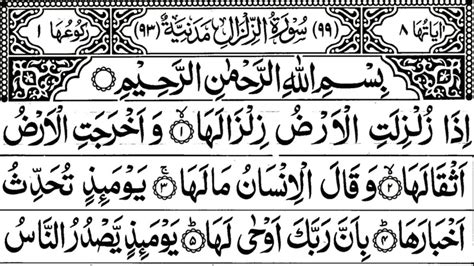 اٰيَاتُهَا ٨ (٩٩) سُوْرَةُ الزِّلْزَالِ مَدَنِيَّةٌ (٩٣) رُكُوْعُهَا ١
بِسْمِ اللّٰهِ الرَّحْمٰنِ الرَّحِيْمِ
اِذَا زُلْزِلَتِ الْاَرْضُ زِلْزَالَهَا ۙ﴿١﴾ وَ اَخْرَجَتِ الْاَرْضُ
اَثْقَالَهَا ۙ﴿٢﴾ وَ قَالَ الْاِنْسَانُ مَا لَهَا ۚ﴿٣﴾ يَوْمَئِذٍ تُحَدِّثُ
اَخْبَارَهَا ۙ﴿٤﴾ بِاَنَّ رَبَّكَ اَوْحٰى لَهَا ؕ﴿٥﴾ يَوْمَئِذٍ يَّصْدُرُ النَّاسُ